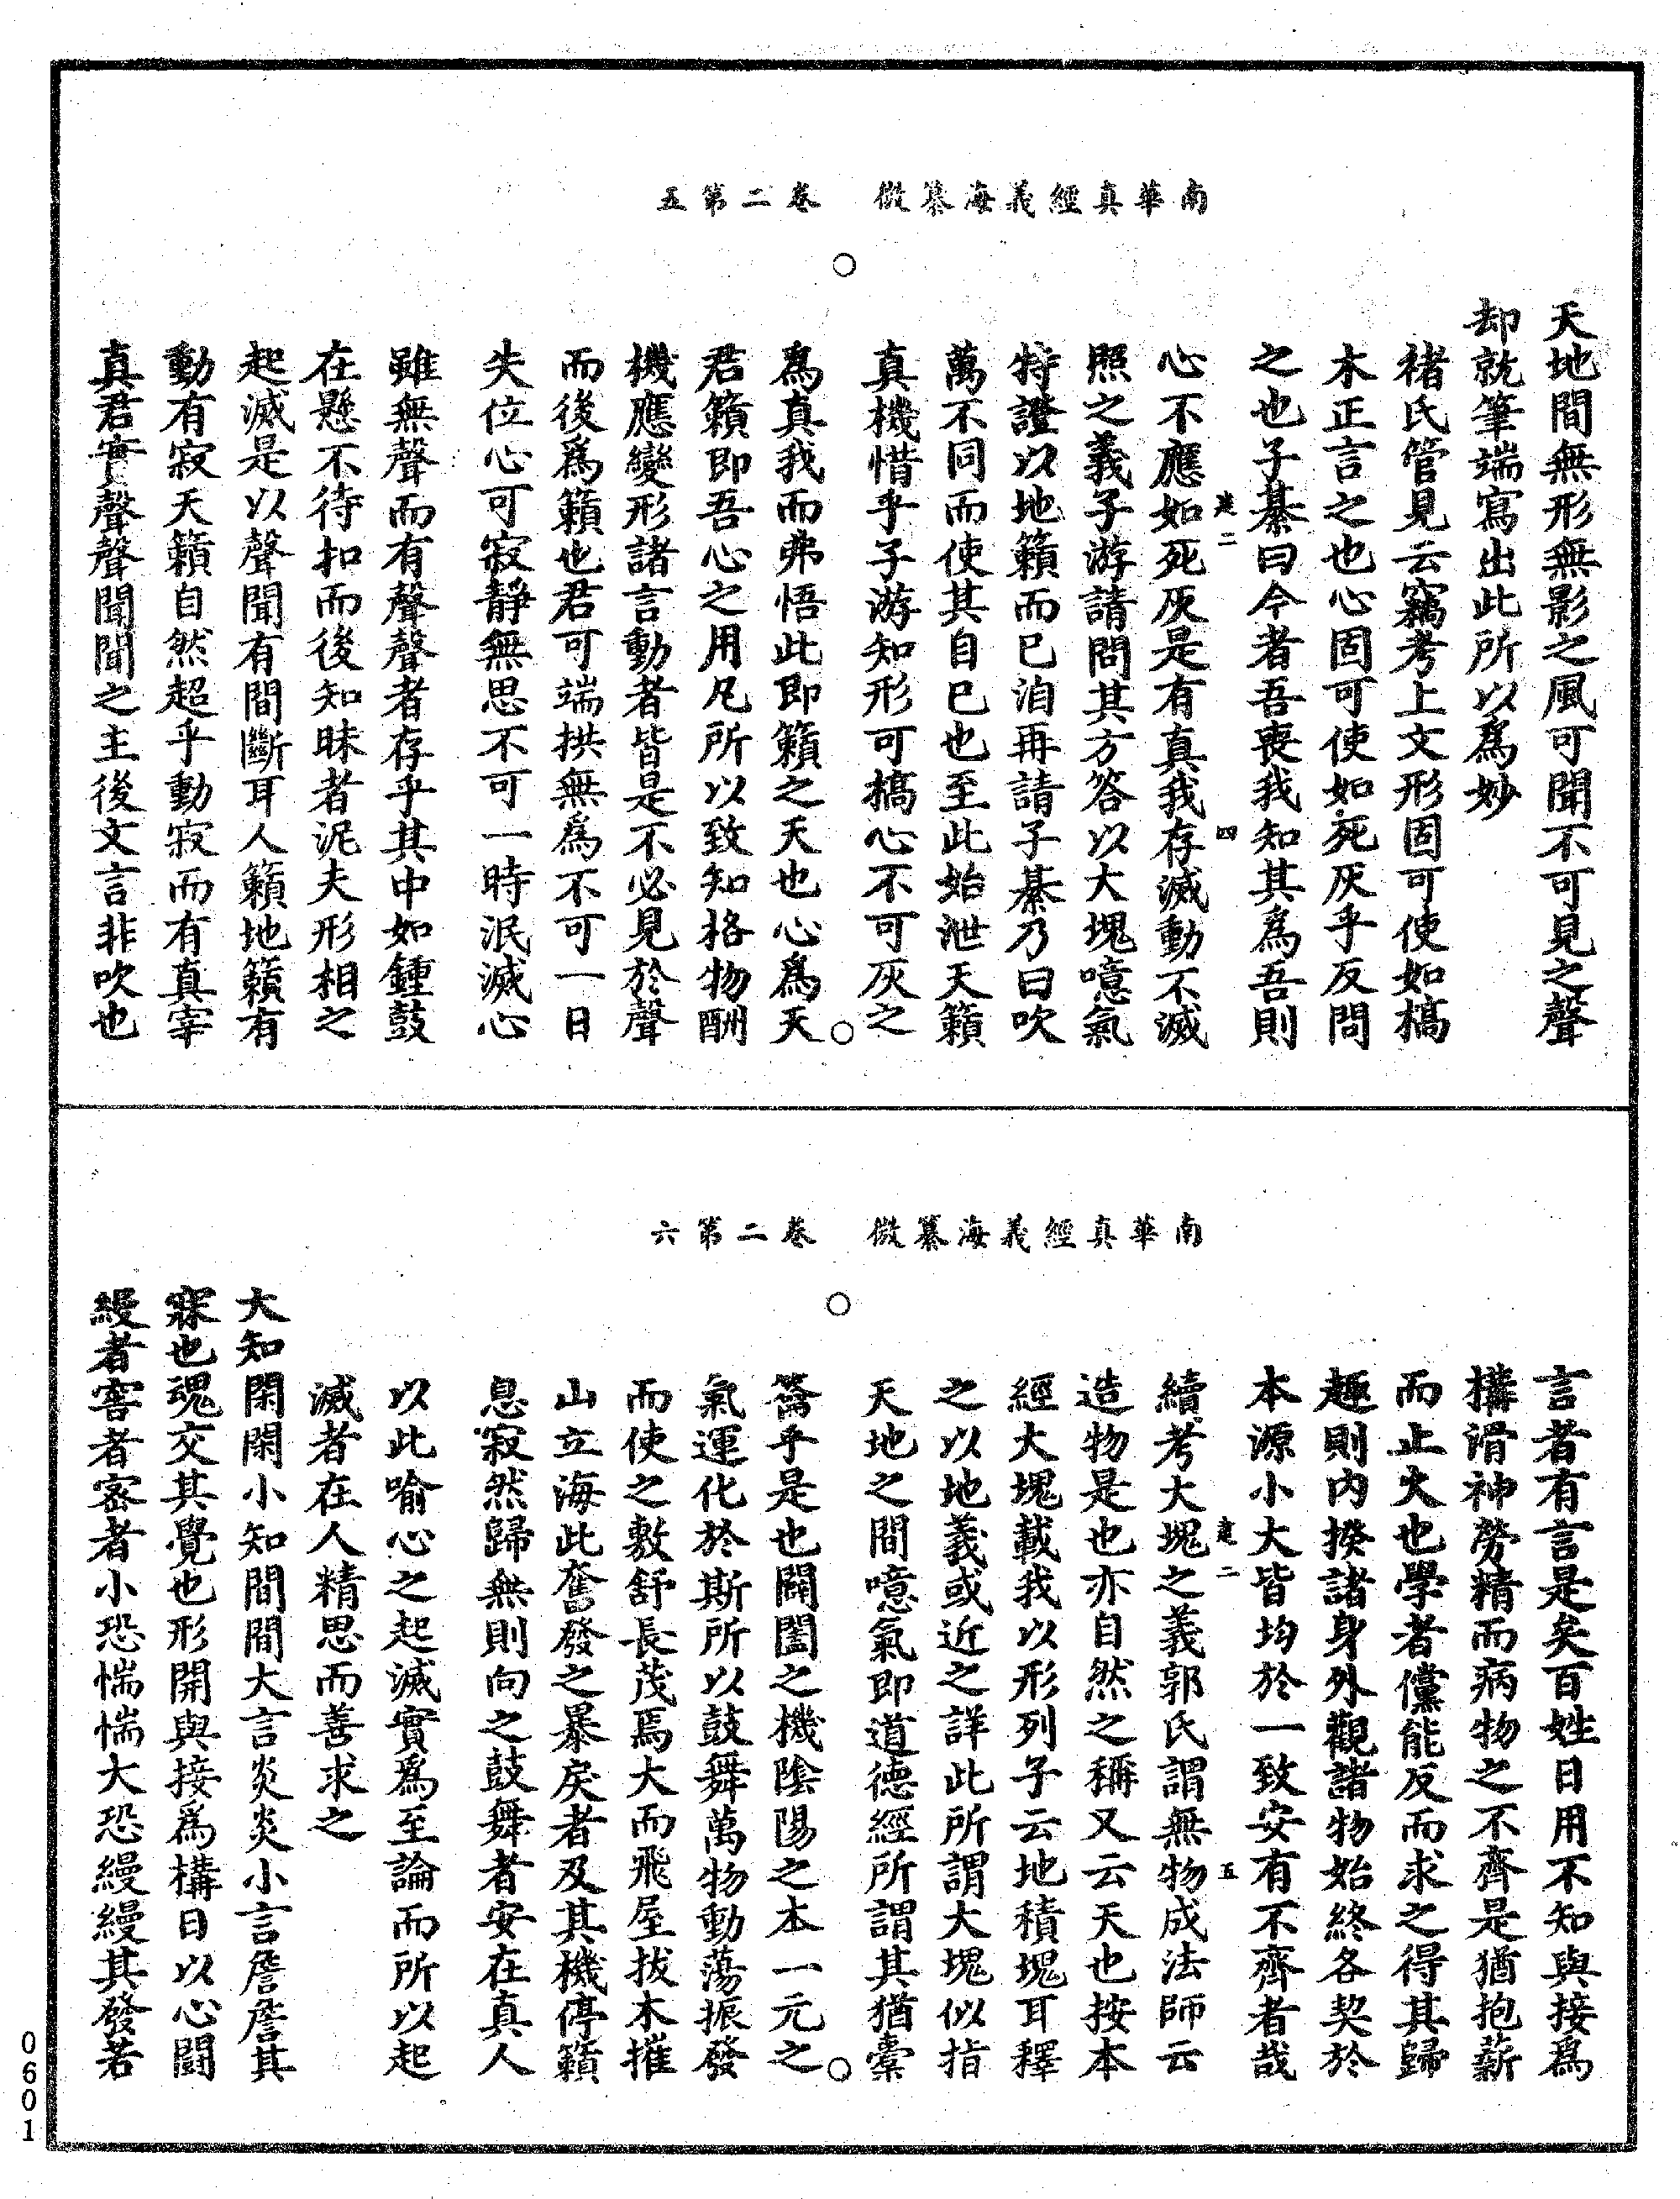 南華真經義海纂微　卷二第五
天地間無形無影之風可聞不可見之聲
却就筆端寫出此所以爲妙
褚氏管見云竊考上文形固可使如槁
木正言之也心固可使如死灰乎反問
之也子綦曰今者吾喪我知其爲吾則
建二　四
心不應如死灰是有真我存滅動不滅
照之義子游請問其方答以大塊噫氣
特證以地籟而已洎再請子綦乃曰吹
萬不同而使其自已也至此始泄天籟
真機惜乎子游知形可槁心不可灰之
爲真我而弗悟此即籟之天也心爲天
君籟即吾心之用凡所以致知格物酬
機應變形諸言動者皆是不必見於聲
而後爲籟也君可端拱無爲不可一日
失位心可寂靜無思不可一時泯滅心
雖無聲而有聲聲者存乎其中如鍾鼓
在懸不待扣而後知昧者泥夫形相之
起滅是以聲聞有間斷耳人籟地籟有
動有寂天籟自然超乎動寂而有真宰
真君實聲聲聞聞之主後文言非吹也
南華真經義海纂微　卷二第六
言者有言是矣百姓日用不知與接爲
構滑神勞精而病物之不齊是猶抱薪
而止火也學者儻能反而求之得其歸
趣則內揆諸身外觀諸物始終各契於
本源小大皆均於一致安有不齊者哉
建二　五
續考大塊之義郭氏謂無物成法師云
造物是也亦自然之稱又云天也按本
經大塊載我以形列子云地積塊耳釋
之以地義或近之詳此所謂大塊似指
天地之間噫氣即道德經所謂其猶橐
籥乎是也闢闔之機陰陽之本一元之
氣運化於斯所以鼓舞萬物動蕩振發
而使之敷舒長茂焉大而飛屋拔木摧
山立海此奮發之暴戾者及其機停籟
息寂然歸無則向之鼓舞者安在真人
以此喻心之起滅實爲至論而所以起
滅者在人精思而善求之
大知閑閑小知間間大言炎炎小言詹詹其
寐也魂交其覺也形開與接爲構日以心鬭
縵者窖者密者小恐惴惴大恐縵縵其發若
0601